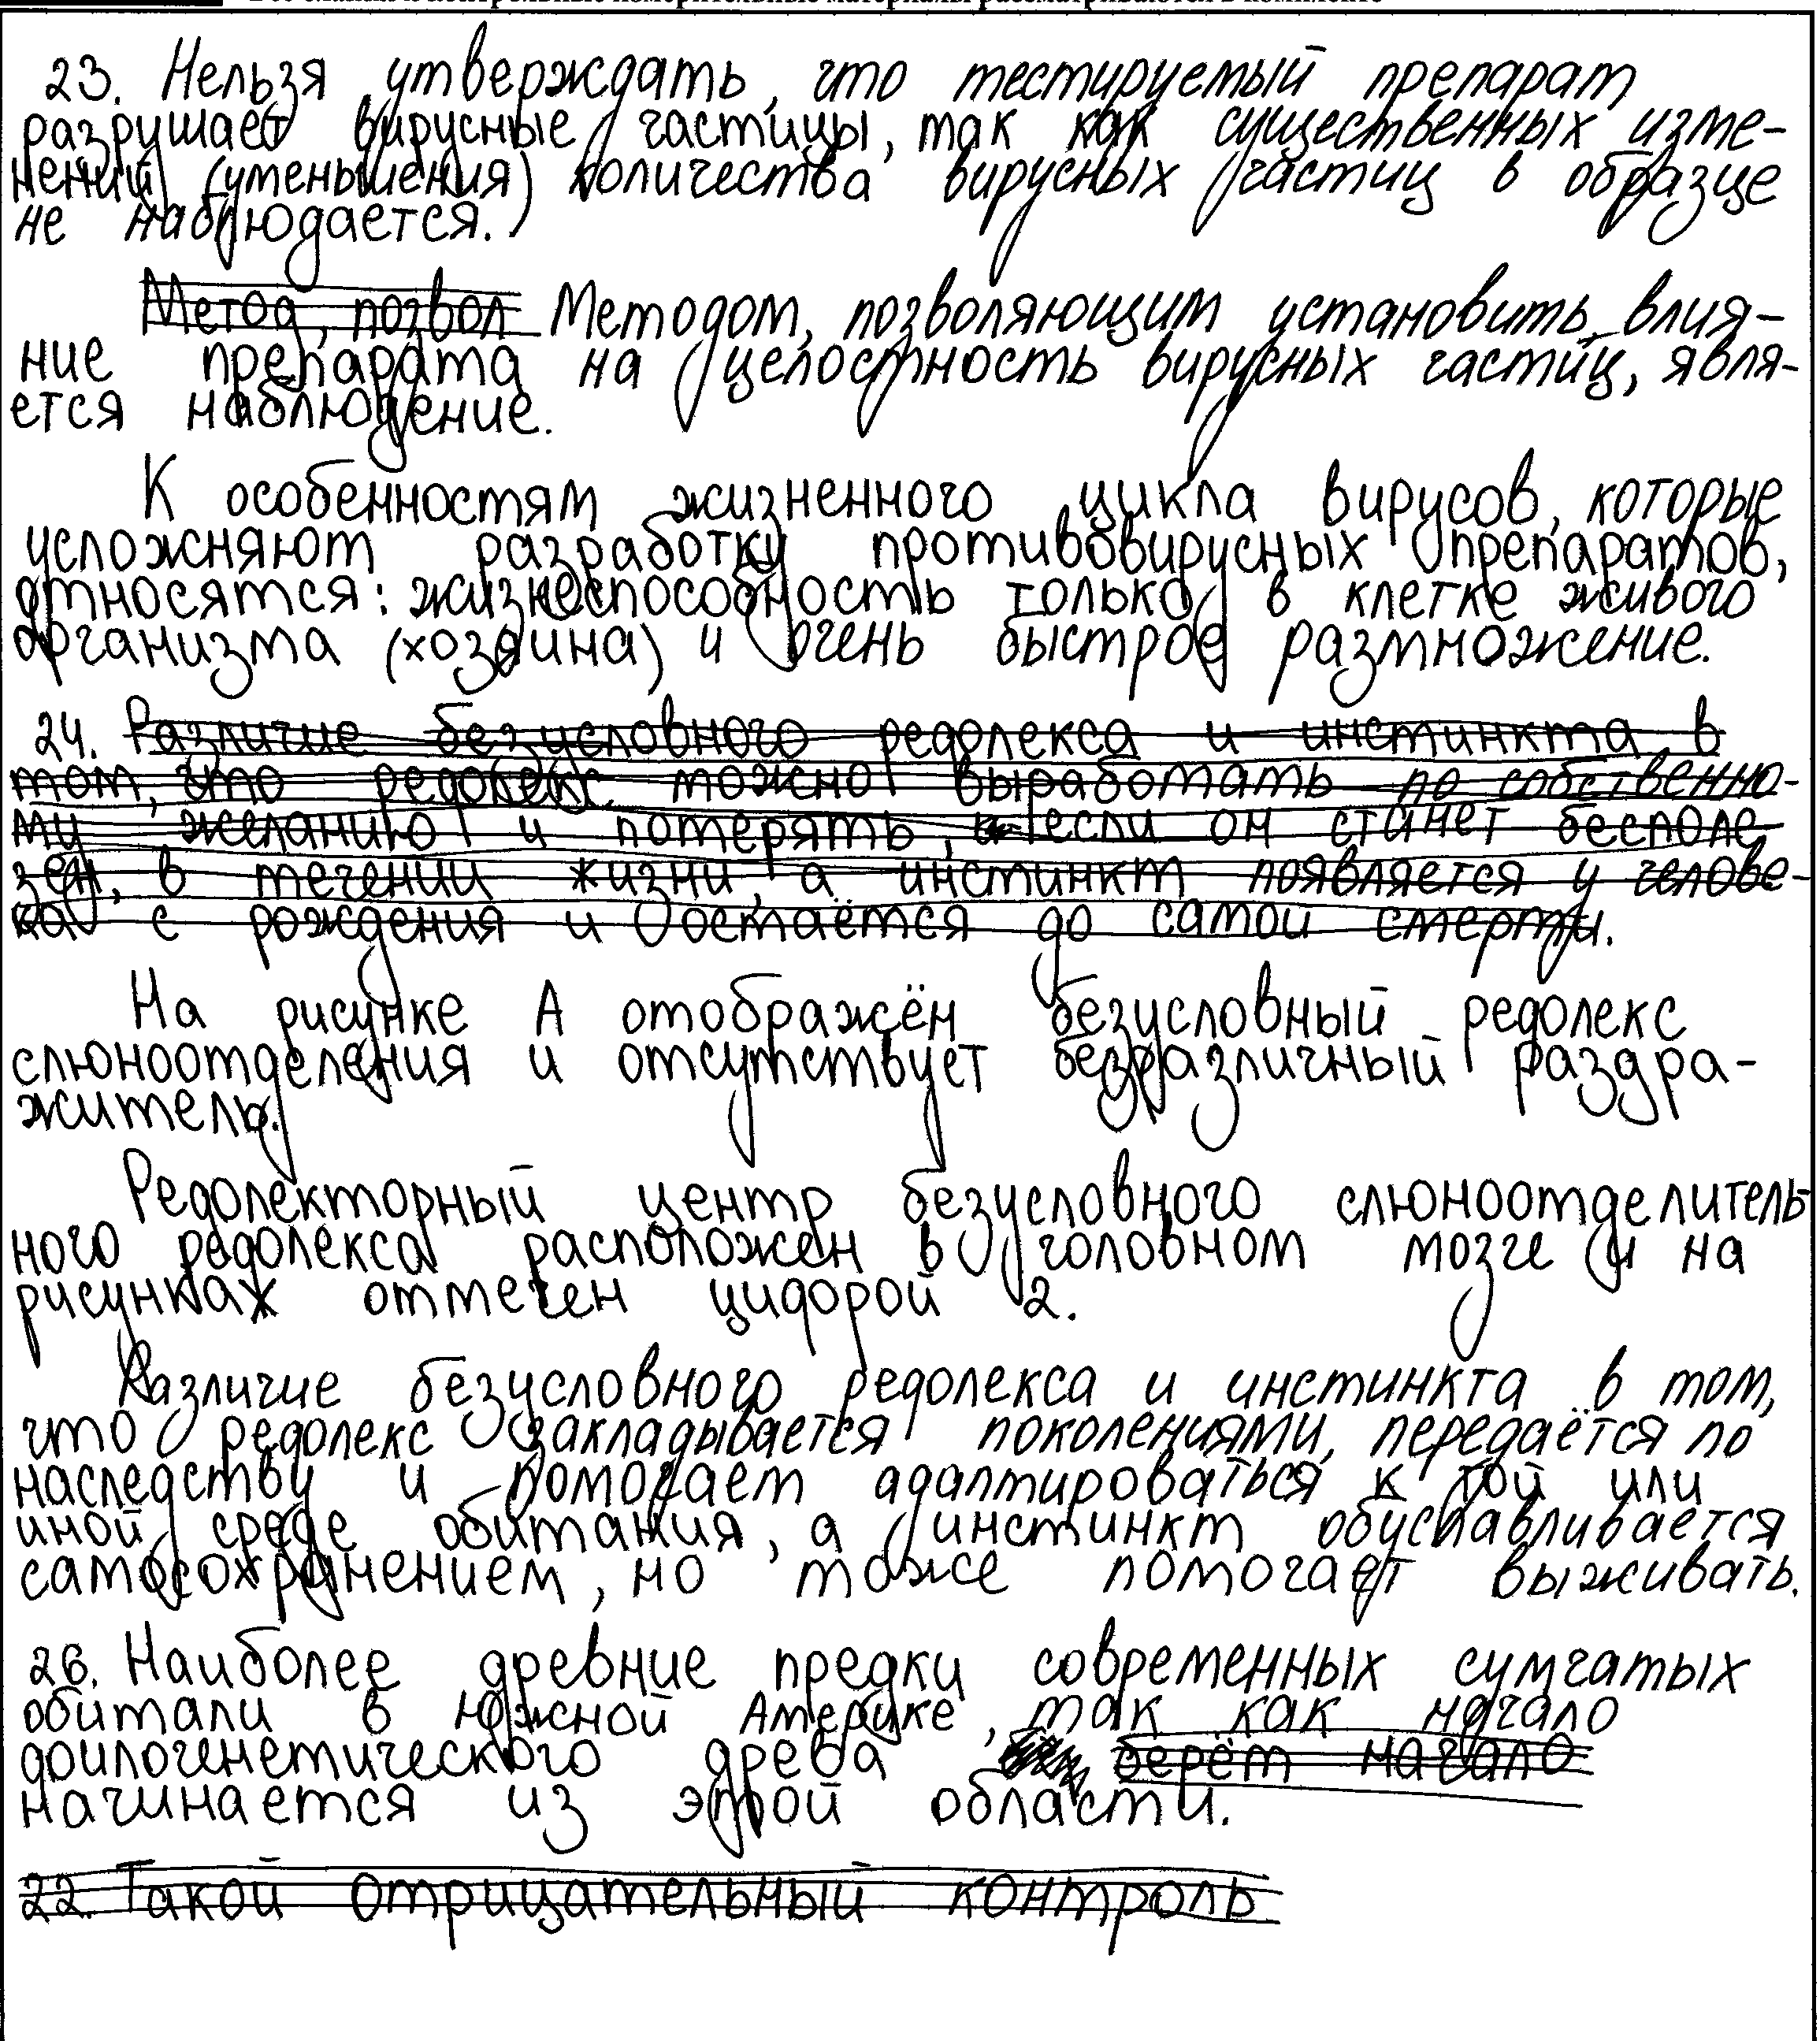 23. Нельзя утверждать, что тестируемый препарат
разрушает вирусные частицы, так как существенных изме-
нений (уменьшения) количества вирусных частиц в образце
не наблюдается.
Метод, позвол Методом, позволяющим установить влия-
ние препарата на целостность вирусных частиц, явля-
ется наблюдение.
К особенностям жизненного цикла вирусов, которые
усложняют разработку противовирусных препаратов,
относятся: жизнеспособность только в клетке живого
организма (хозяина) и очень быстрое размножение.
24. Различие безусловного рефлекса и инстинкта в
том, что рефлекс можно выработать по собственно-
му желанию и потерять, если он станет бесполе
зен, в течении жизни, а инстинкт появляется у челове-
ка с рождения и остаётся до самой смерти.
На рисунке А отображён безусловный рефлекс
слюноотделения и отсутствует безразличный раздра-
житель.
Рефлекторный центр безусловного слюноотделитель-
ного рефлекса расположен в головном мозге и на
рисунках отмечен цифрой 2.
Различие безусловного рефлекса и инстинкта в том,
что рефлекс закладывается поколениями, передаётся по
наследству и помогает адаптироваться к той или
иной среде обитания, а инстинкт обуславливается
самосохранением, но тоже помогает выживать.
26. Наиболее древние предки современных сумчатых
обитали в Южной Америке, так как начало
филогенетического древа берёт начало
начинается из этой области.
22. Такой отрицательный контроль